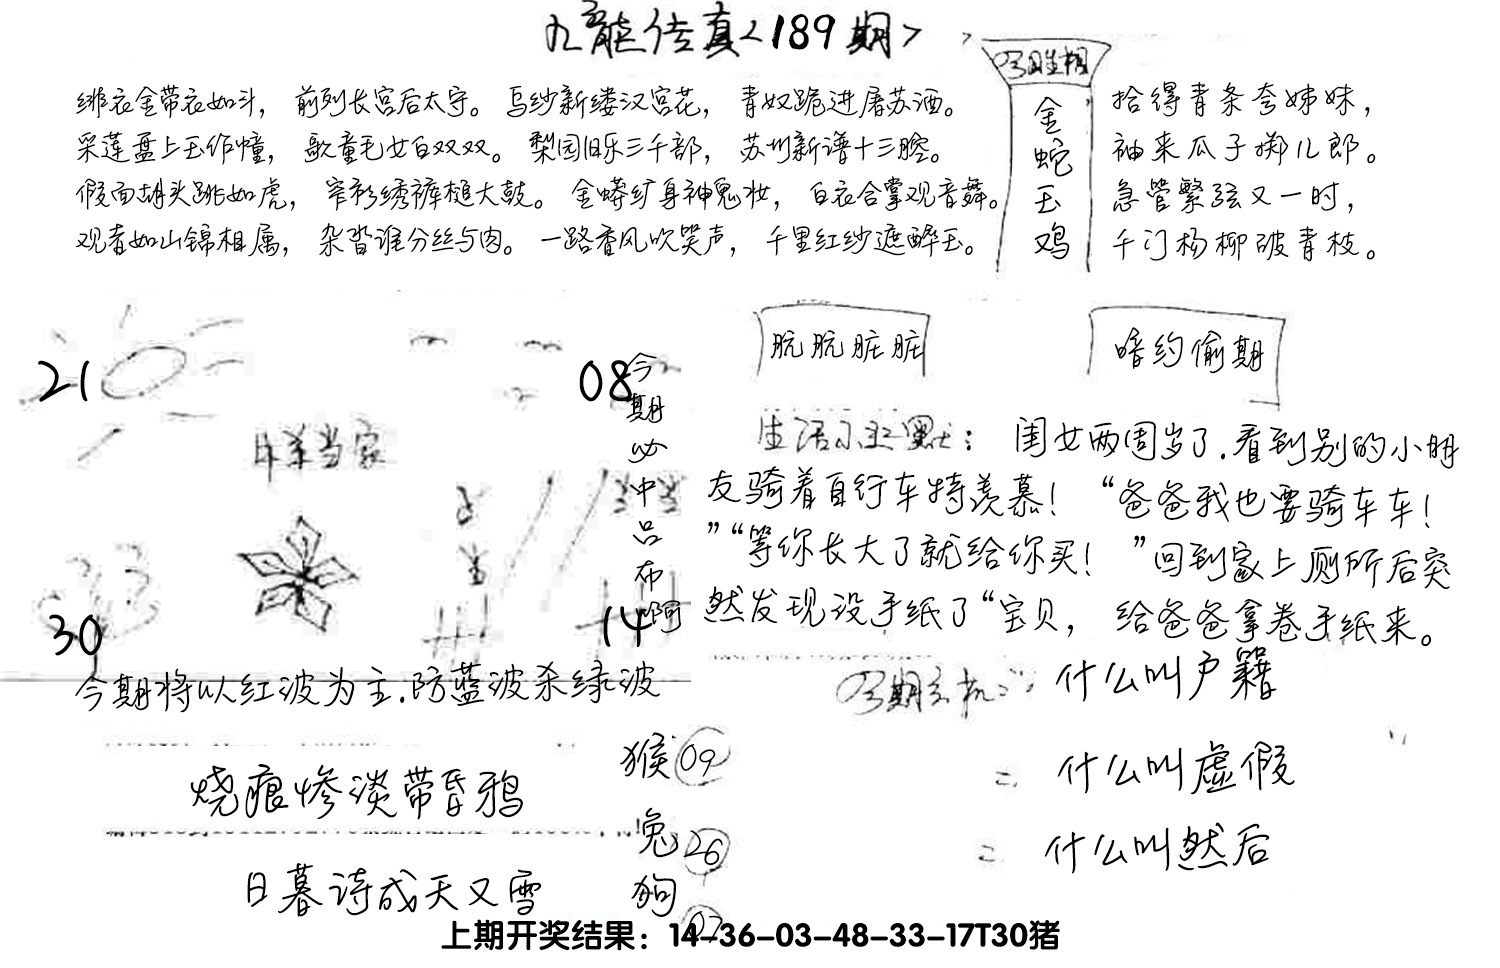 九龍传真<189期>
绯衣金带衣如斗，前列长宫后太守。乌纱新缕汉宫花，青奴跪进屠苏酒。
采莲盘上玉作幢，歌童毛女白双双。梨园旧乐三千部，苏州新谱十三腔。
假面胡头跳如虎，窄衫绣裤槌大鼓。金蟒纩身神鬼妆，白衣合掌观音舞。
观者如山锦相属，杂沓谁分丝与肉。一路香风吹笑声，千里红纱遮醉玉。
今日生相
金蛇玉鸡
拾得青条夸姊妹，
袖来瓜子掷儿郎。
急管繁弦又一时，
千门杨柳破青枝。
21
08
羊当家
30
14
今期必中吕布啊
今期将以红波为主.防蓝波杀绿波
朊朊脏脏
暗约偷期
生活小幽默：闺女两周岁了.看到别的小朋
友骑着自行车特羡慕！“爸爸我也要骑车车！
”“等你长大了就给你买！”回到家上厕所后突
然发现没手纸了“宝贝，给爸爸拿卷手纸来。
今期玄机：什么叫户籍
= 什么叫虚假
= 什么叫然后
烧痕惨淡带昏鸦
日暮诗成天又雪
猴 09
兔 26
狗 02
上期开奖结果：14-36-03-48-33-17T30猪